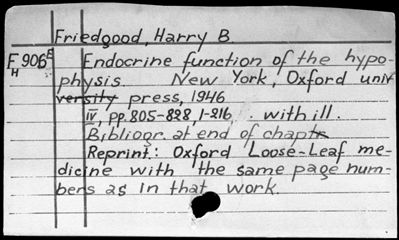 Friedgood, Harry B
F906E Endocrine function of the hypo-
H physis. New York, Oxford univ
versity press, 1946
iv, pp. 805-828, 1-216, . with ill.
Bibliogr. at end of chaptr
Reprint: Oxford Loose-Leaf me-
dicine with the same page num-
bers as in that work.